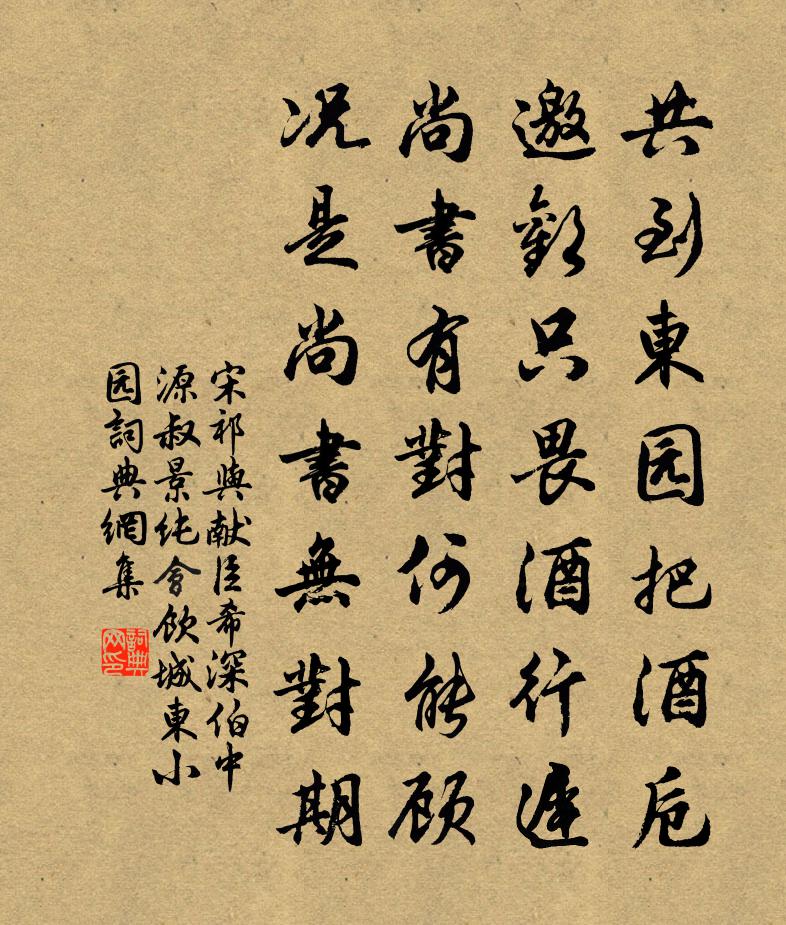 共到東园把酒卮
邀歡只畏酒行遲
尚書有對何能顾
况是尚書無對期
宋祁與献臣希深伯中
源叔景纯會飲城東小
园詞典網集
詞典
网印